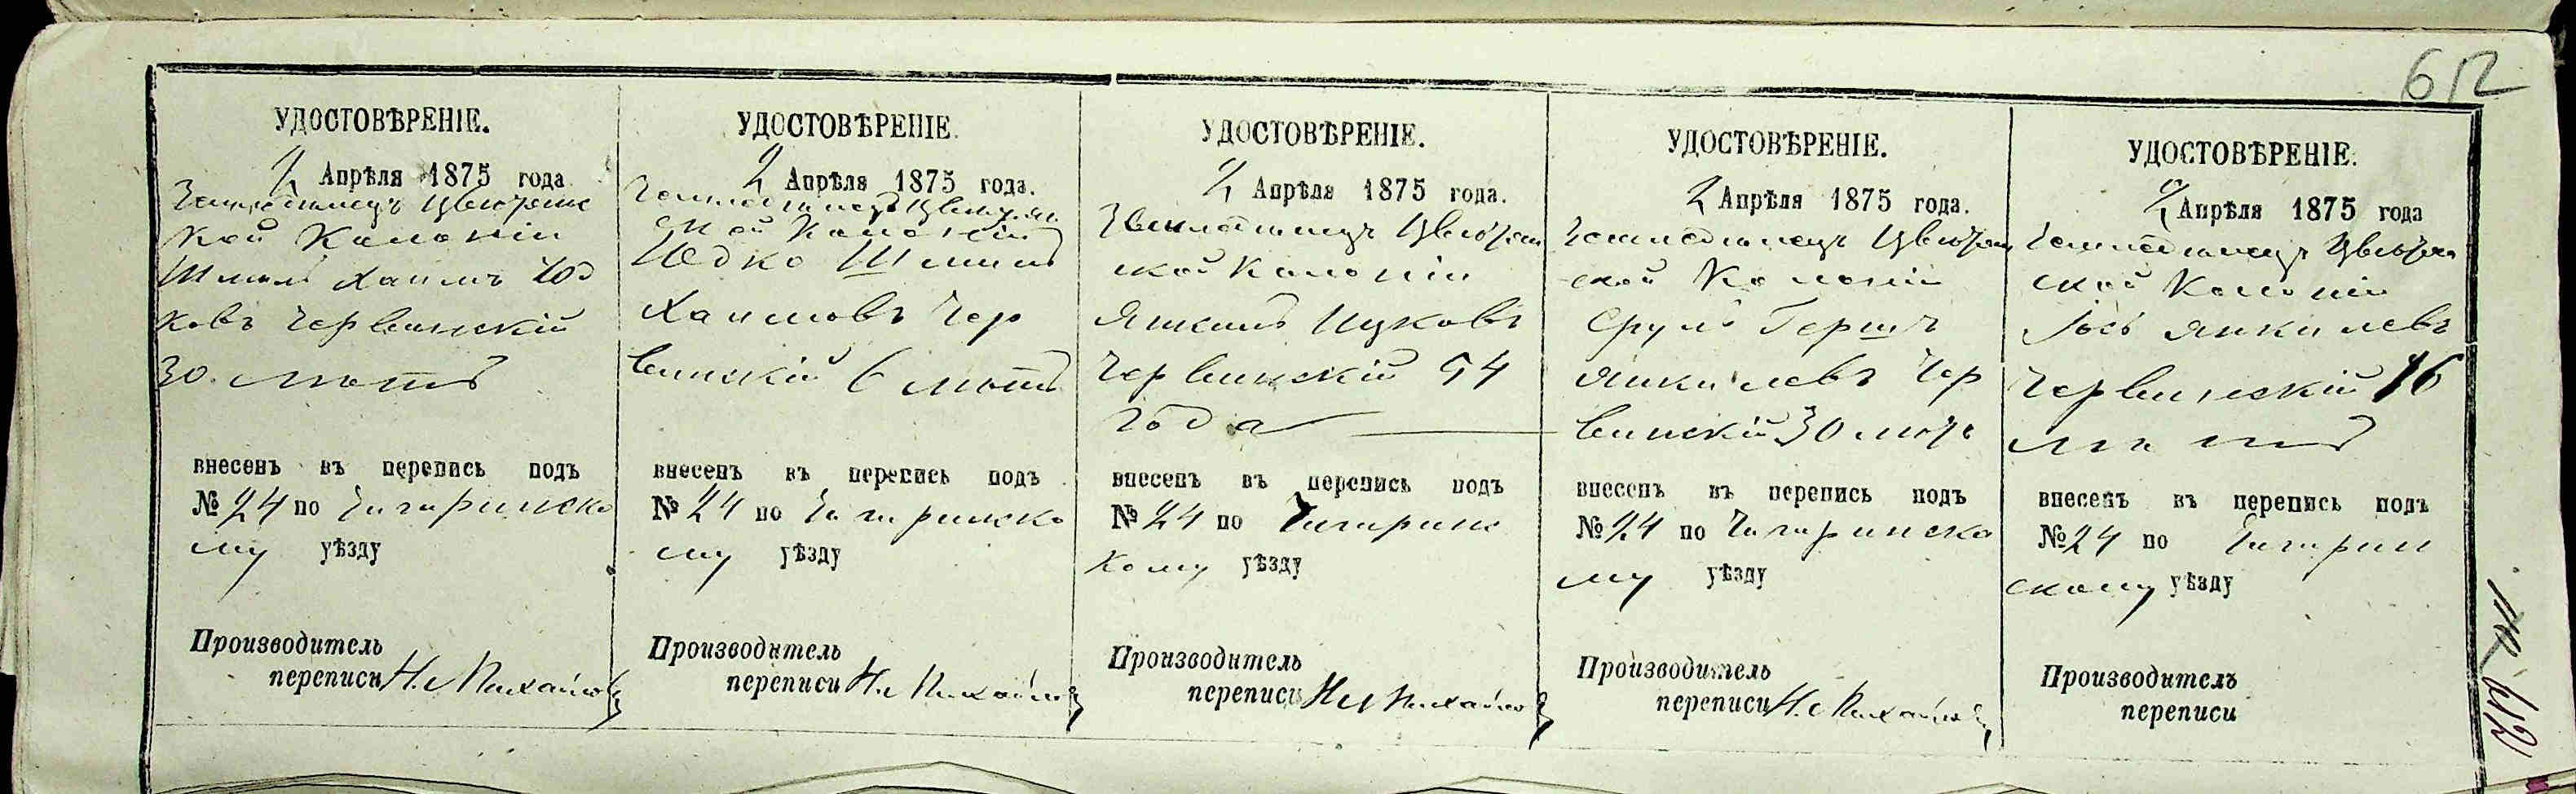 612
УДОСТОВѢРЕНІЕ.
2 Апрѣля 1875 года
Земледелецъ
кой Колоніи
Шмиль Хаимъ Юд
ковъ Червинскій
30 лѣтъ
внесенъ въ перепись подъ
№ 24 по Чигиринско
му уѣзду
Производитель
переписи Михайловъ
УДОСТОВѢРЕНІЕ.
2 Апрѣля 1875 года.
Земледелецъ
ской Колоніи
Юдко Шмиль
Хаимовъ Чер
винскій 6 лѣтъ
внесенъ въ перепись подъ
№ 24 по Чигиринско
му уѣзду
Производитель
переписи Михайловъ
УДОСТОВѢРЕНІЕ.
2 Апрѣля 1875 года.
Земледелецъ
ской Колоніи
Янкель Ицковъ
Червинскій 54
года
внесенъ въ перепись подъ
№ 24 по Чигиринс
кому уѣзду
Производитель
переписи Михайловъ
УДОСТОВѢРЕНІЕ.
2 Апрѣля 1875 года.
Земледелецъ
ской Колоніи
Сруль Гершъ
Янкилевъ Чер
винскій 30 лѣтъ
внесенъ въ перепись подъ
№ 24 по Чигиринско
му уѣзду
Производитель
переписи Михайловъ
УДОСТОВѢРЕНІЕ.
2 Апрѣля 1875 года
Земледелецъ
ской Колоніи
Іось Янкилевъ
Червинскій 16
лѣтъ
внесенъ въ перепись подъ
№ 24 по Чигирин
скому уѣзду
Производитель
переписи
612